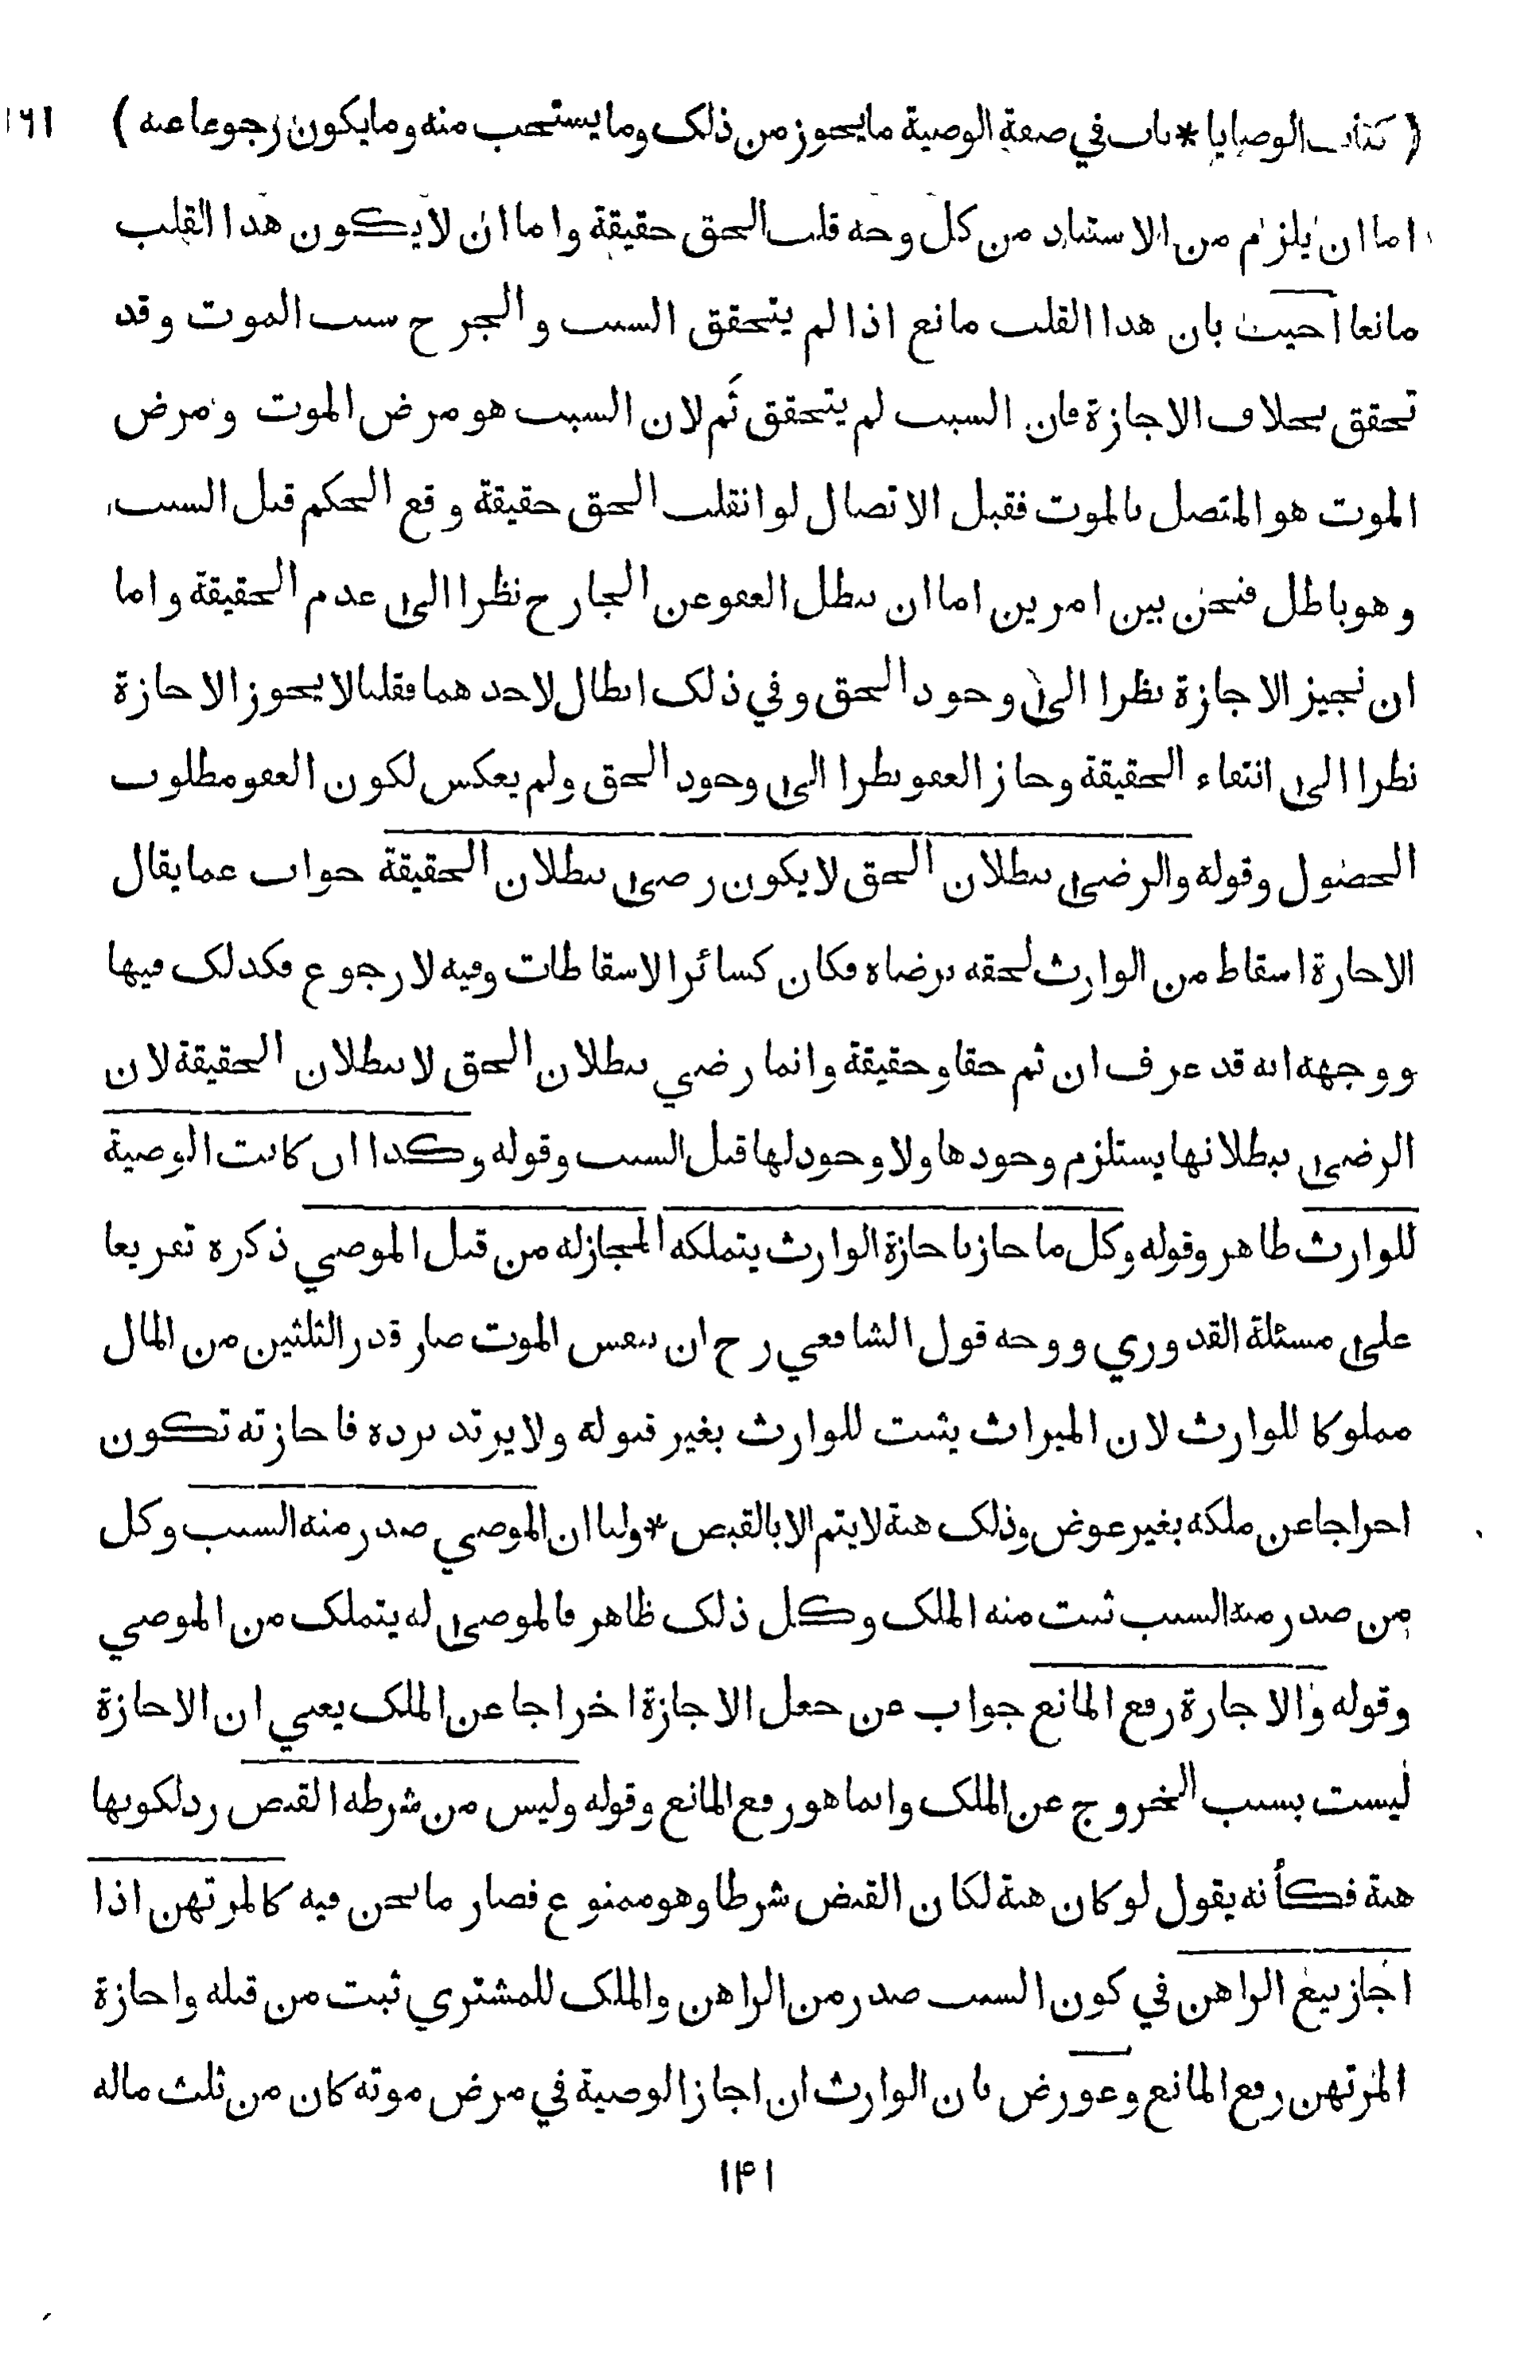 ( كتاب الوصايا * باب في صفة الوصية ما يجوز من ذلك وما يستحب منه وما يكون رجوعا عنه ) ١٦١
اما ان يلزم من الاستناد من كل وجه قلب الحق حقيقة واما ان لا يكون هذا القلب
مانعا اجيب بان هذا القلب مانع اذا لم يتحقق السبب والجرح سبب الموت وقد
تحقق بخلاف الاجازة فان السبب لم يتحقق ثَم لان السبب هو مرض الموت ومرض
الموت هو المتصل بالموت فقبل الاتصال لو انقلب الحق حقيقة وقع الحكم قبل السبب
وهو باطل فنحن بين امرين اما ان نبطل العفو عن الجارح نظرا الى عدم الحقيقة واما
ان نجيز الاجازة نظرا الى وجود الحق وفي ذلك ابطال لاحدهما فقلنا لا يجوز الاجازة
نظرا الى انتفاء الحقيقة وجاز العفو نظرا الى وجود الحق ولم يعكس لكون العفو مطلوب
الحصول وقوله والرضى ببطلان الحق لا يكون رضى ببطلان الحقيقة جواب عما يقال
الاجازة اسقاط من الوارث لحقه برضاه فكان كسائر الاسقاطات وفيه لا رجوع فكذلك فيها
ووجهه انه قد عرف ان ثم حقا وحقيقة وانما رضي ببطلان الحق لا ببطلان الحقيقة لان
الرضى ببطلانها يستلزم وجودها ولا وجود لها قبل السبب وقوله وكذا ان كانت الوصية
للوارث ظاهر وقوله وكل ما جاز باجازة الوارث يتملكه المجاز له من قبل الموصي ذكره تفريعا
على مسئلة القدوري ووجه قول الشافعي رح ان بنفس الموت صار قدر الثلثين من المال
مملوكا للوارث لان الميراث يثبت للوارث بغير قبوله ولا يرتد برده فاجازته تكون
اخراجا عن ملكه بغير عوض وذلك هبة لا يتم الا بالقبض * ولنا ان الموصي صدر منه السبب وكل
من صدر منه السبب ثبت منه الملك وكل ذلك ظاهر فالموصى له يتملك من الموصي
وقوله والاجازة رفع المانع جواب عن جعل الاجازة اخراجا عن الملك يعني ان الاجازة
ليست بسبب الخروج عن الملك وانما هو رفع المانع وقوله وليس من شرطه القبض رد لكونها
هبة فكأنه يقول لو كان هبة لكان القبض شرطا وهو ممنوع فصار ما نحن فيه كالمرتهن اذا
اجاز بيع الراهن في كون السبب صدر من الراهن والملك للمشتري ثبت من قبله واجازة
المرتهن رفع المانع وعورض بان الوارث ان اجاز الوصية في مرض موته كان من ثلث ماله
١٤١